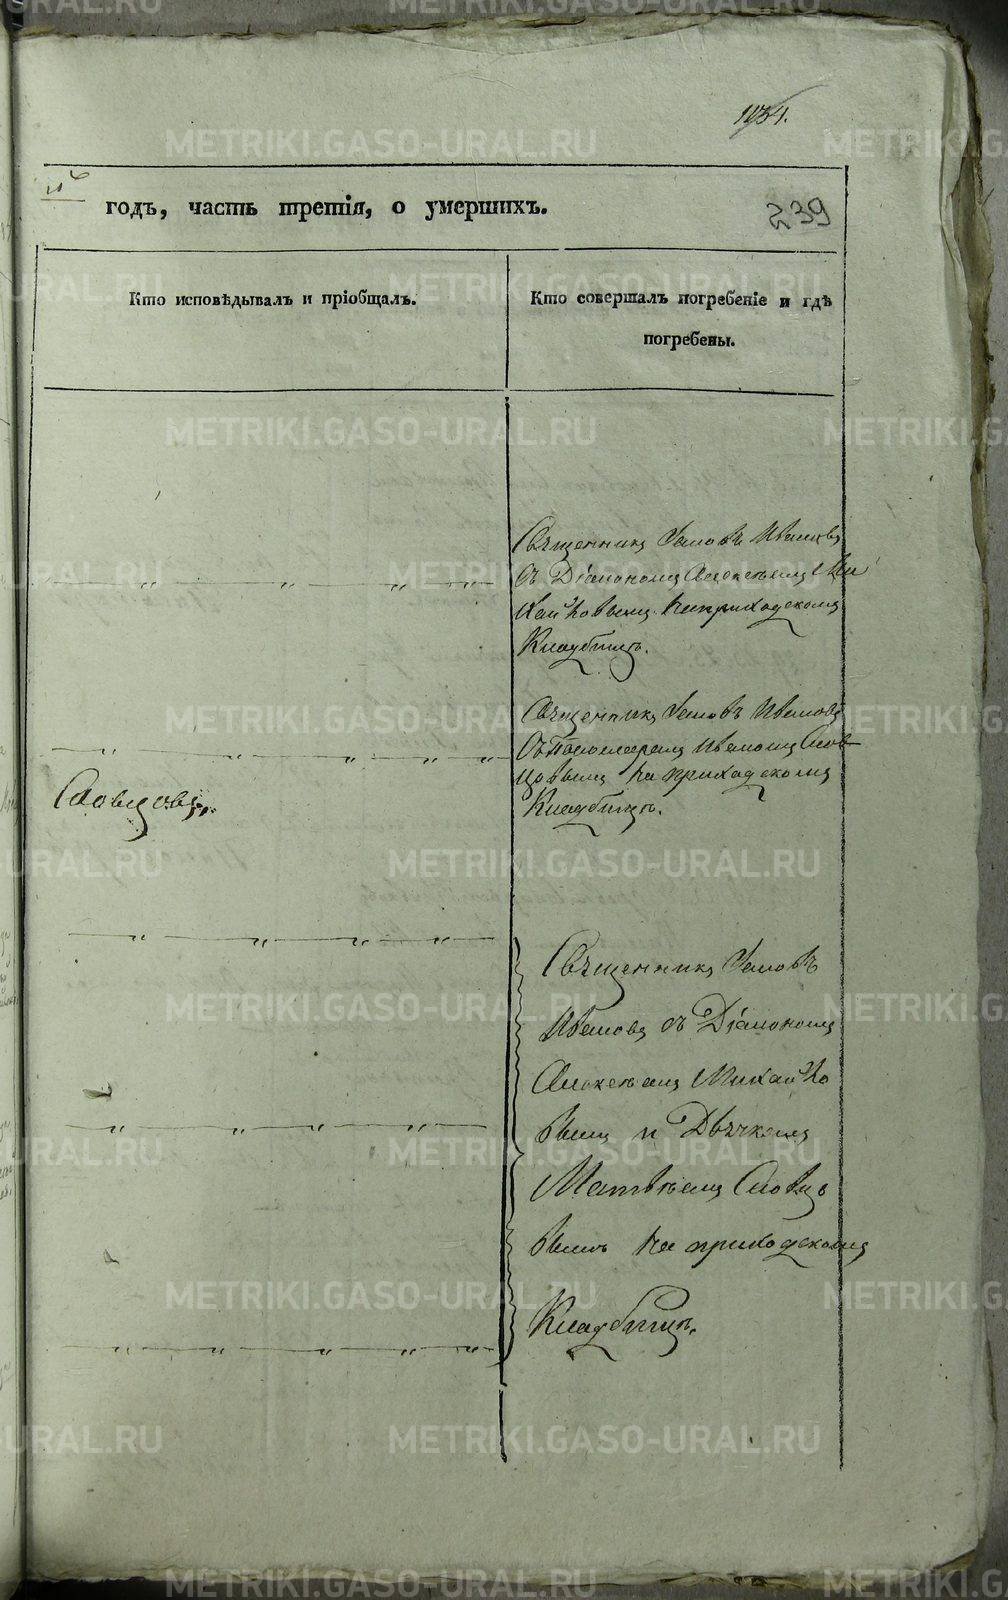 1134.
го
годъ, часть третія, о умершихъ.
239
Кто исповѣдывалъ и пріобщалъ.
Кто совершалъ погребеніе и гдѣ
погребены.
Священникъ Іаковъ Ивановъ
съ Діакономъ Алексѣемъ Ми
хайловымъ на приходскомъ
Кладбищѣ.
Священникъ Іаковъ Ивановъ
съ Пономаремъ Иваномъ Слов
цовымъ на приходскомъ
Кладбищѣ.
Словцовъ,
Священникъ Іаковъ
Ивановъ съ Діакономъ
Алексѣемъ Михайло
вымъ и Дьячкомъ
Матвѣемъ Словцо
вымъ на приходскомъ
Кладбищѣ.
METRIKI.GASO-URAL.RU